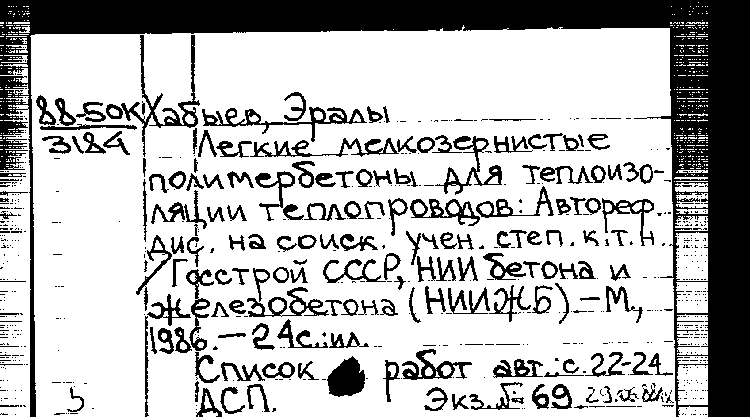 88-50К Хабыев, Эралы
3184
Легкие мелкозернистые
полимербетоны для теплоизо-
ляции теплопроводов: Автореф.
дис. на соиск. учен. степ. к.т.н.
/Госстрой СССР, НИИ бетона и
железобетона (НИИЖБ).-М.,
1986.-24с.:ил.
Список работ авт.: с. 22-24
ДСП. Экз. № 69